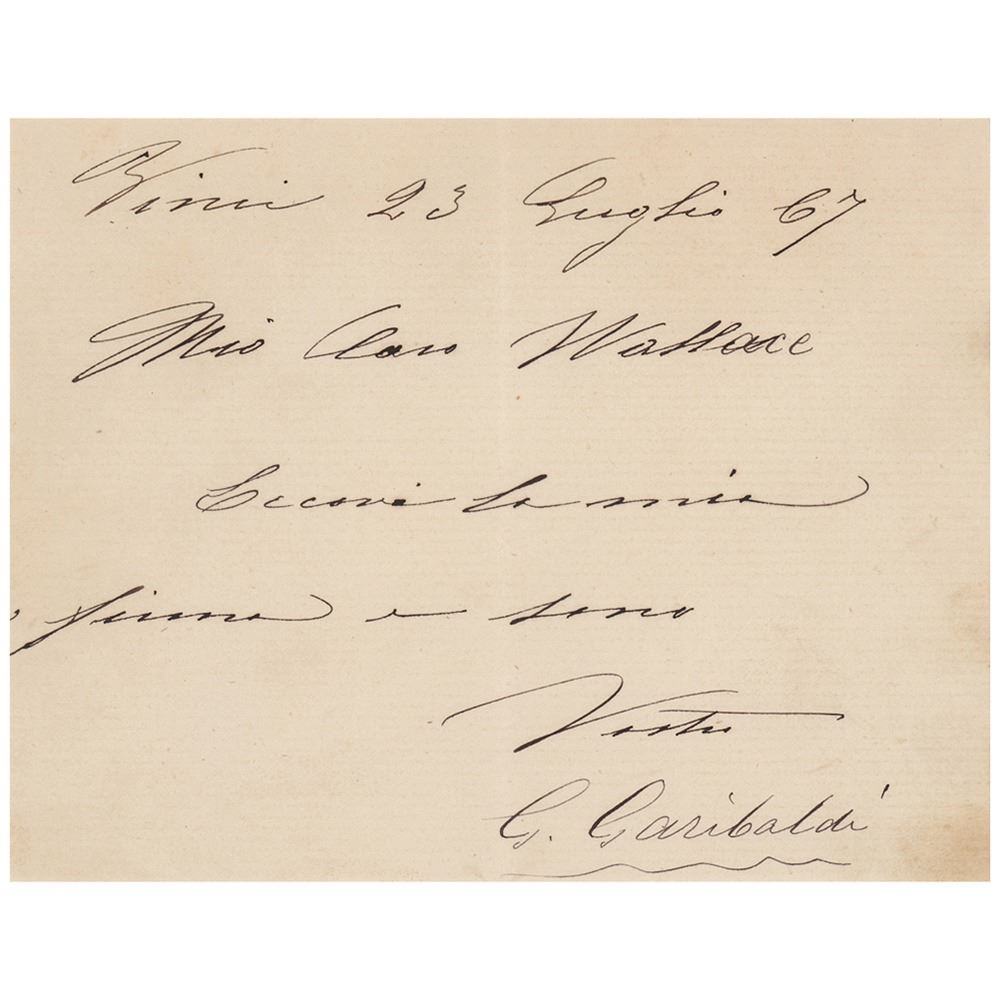 Vinci 23 Luglio 67
Mio Caro Wallace
Eccovi la mia
firma e sono
Vostro
G. Garibaldi